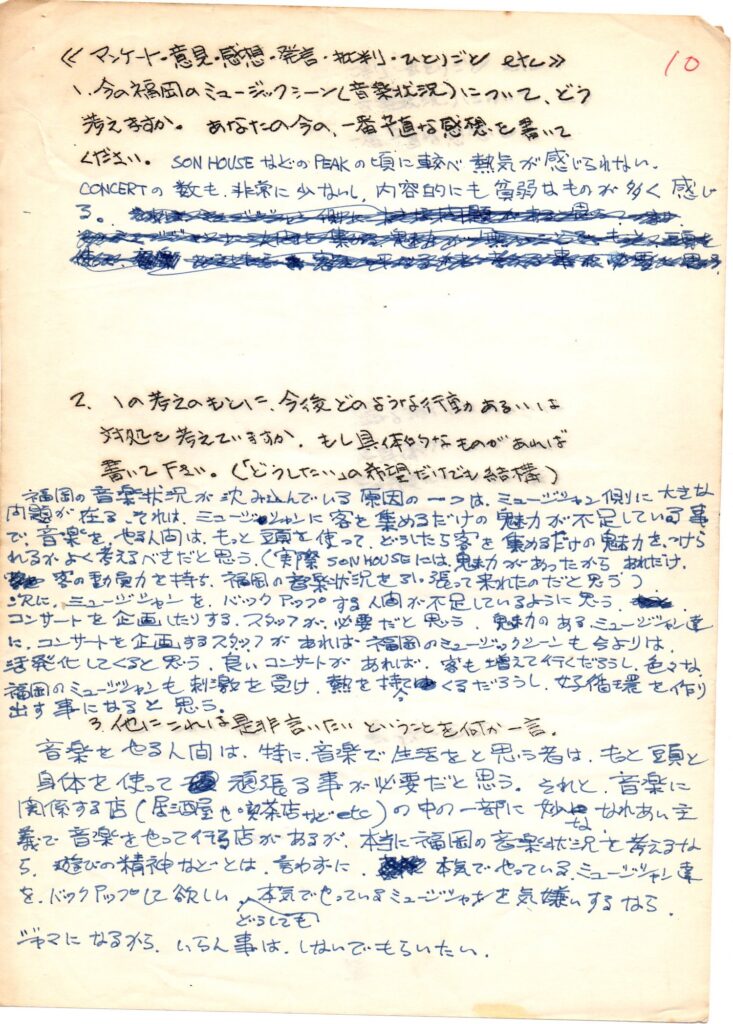 10
≪アンケート・意見・感想・発言・批判・ひとりごと etc≫
1. 今の福岡のミュージックシーン(音楽状況)について、どう
考えますか。 あなたの今の、一番卒直な感想を書いて
ください。 SON HOUSE などの PEAK の頃に較べ 熱気が感じられない.
CONCERTの数も、非常に少ないし、内容的にも貧弱なものが多く感じ
る。
2. 1の考えのもとに、今後どのような行動あるいは
対処を考えていますか. もし具体的なものがあれば
書いて下さい。(「どうしたい」の希望だけでも結構)
福岡の音楽状況が沈み込んでいる原因の一つは、ミュージシャン側に大きな
問題が在る. それは、ミュージシャンに客を集めるだけの魅力が不足している事
で、音楽を、やる人間は、もっと頭を使って、どうしたら客を集めるだけの魅力を、つけら
れるかよく考えるべきだと思う.(実際 SON HOUSEには、魅力があったから あれだけ.
客の動員力を持ち、福岡の音楽状況を引っ張って来れたのだと思う)
次に、ミュージシャンを、バックアップする人間が不足しているように思う.
コンサートを企画したりする、スタッフが、必要だと思う. 魅力のあるミュージシャン達
に、コンサートを企画するスタッフがあれば 福岡のミュージックシーンも今よりは、
活発化してくると思う. 良いコンサートがあれば、客も増えて行くだろうし、色々な、
福岡のミュージシャンも刺激を受け、熱を持ってくるだろうし、好循環を作り
出す事になると思う。
3. 他にこれは是非言いたいということを何か一言.
音楽をやる人間は、特に、音楽で生活をと思う者は、もっと頭と
身体を使って 頑張る事が必要だと思う. それと、音楽に
関係する店(居酒屋や喫茶店など etc)の中の一部に妙な、なれあい主
義で音楽をやって行る店があるが、本当に福岡の音楽状況を考えるな
ら、遊びの精神などとは、言わずに、 本気でやっている、ミュージシャン達
を、バックアップして欲しい、どうしても本気でやっているミュージシャンを気嫌いするなら.
ジャマになるから、いらん事は、しないでもらいたい.